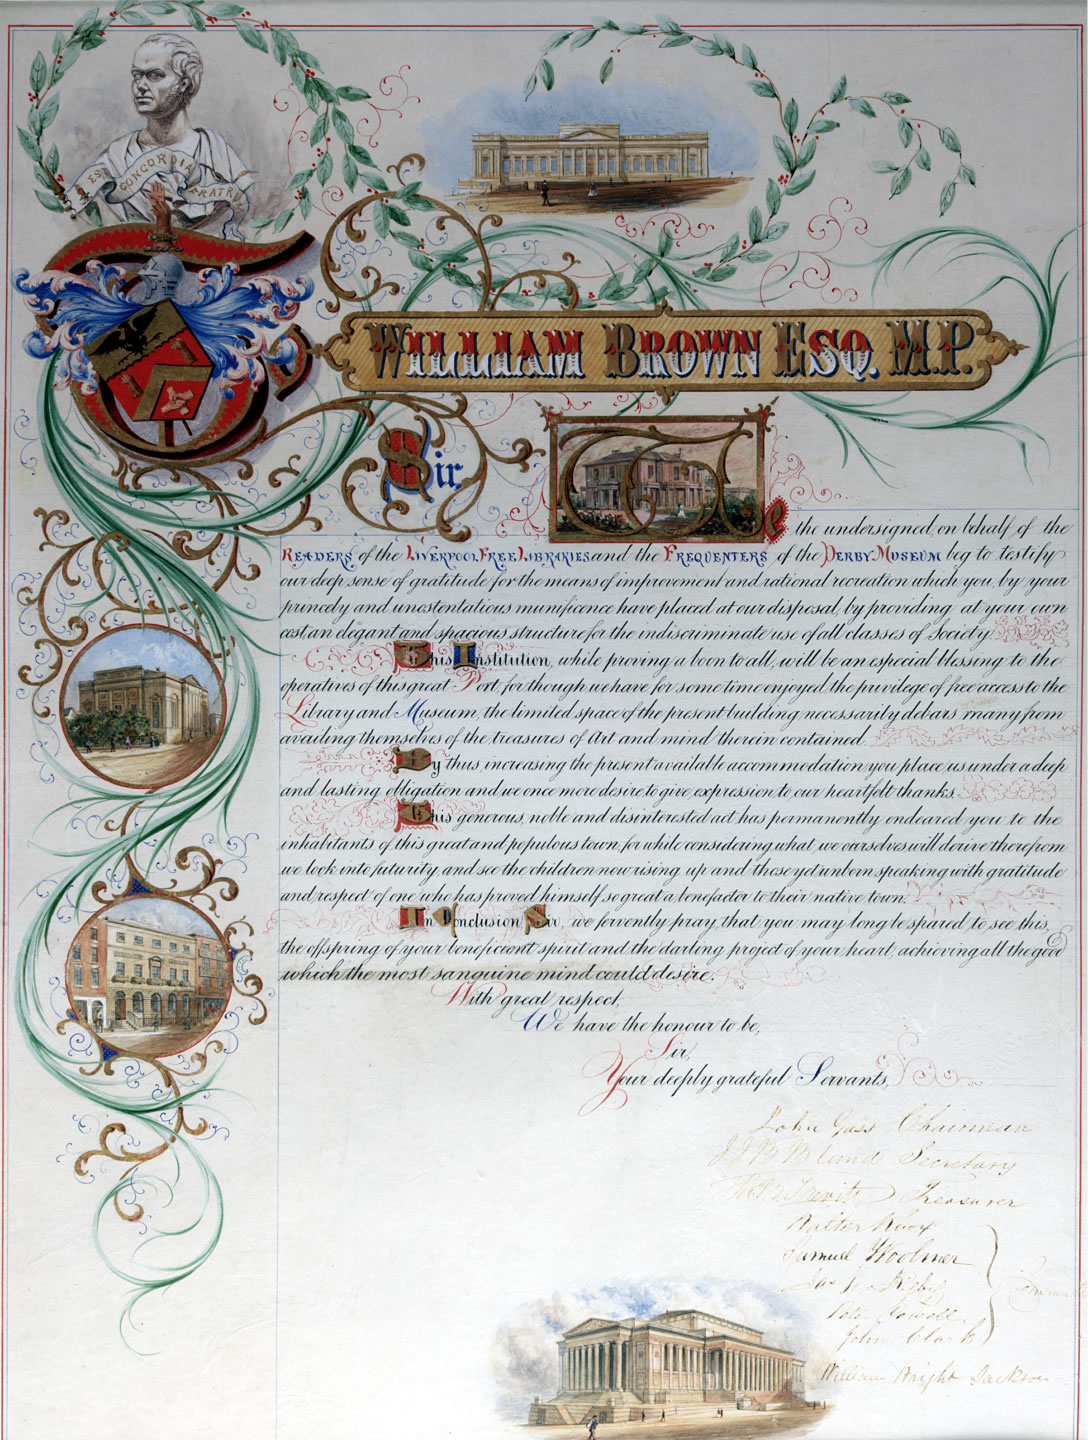 EST CONCORDIA FRATRUM
WILLIAM BROWN ESQ. M.P.
Sir,
We the undersigned, on behalf of the
READERS of the LIVERPOOL FREE LIBRARIES and the FREQUENTERS of the DERBY MUSEUM beg to testify
our deep sense of gratitude for the means of improvement and rational recreation which you, by your
princely and unostentatious munificence have placed at our disposal, by providing at your own
cost, an elegant and spacious structure for the indiscriminate use of all classes of Society.
This Institution, while proving a boon to all, will be an especial blessing to the
operatives of this great Port, for though we have for some time enjoyed the privilege of free access to the
Library and Museum, the limited space of the present building necessarily debars many from
availing themselves of the treasures of Art and mind therein contained.
By thus, increasing the present available accommodation you place us under a deep
and lasting obligation and we once more desire to give expression to our heartfelt thanks.
This generous, noble and disinterested act has permanently endeared you to the
inhabitants of this great and populous town, for while considering what we ourselves will derive therefrom
we look into futurity, and see the children now rising up and those yet unborn speaking with gratitude
and respect of one who has proved himself so great a benefactor to their native town.
In Conclusion Sir, we fervently pray that you may long be spared to see this,
the offspring of your beneficent spirit and the darling project of your heart, achieving all the good
which the most sanguine mind could desire.
With great respect,
We have the honour to be,
Sir,
Your deeply grateful Servants,
John Gass Chairman
Blund Secretary
Treasurer
Walter Knox
Samuel Woolmer
Rigby
Peter Powell
John Clark
William Wright Jackson